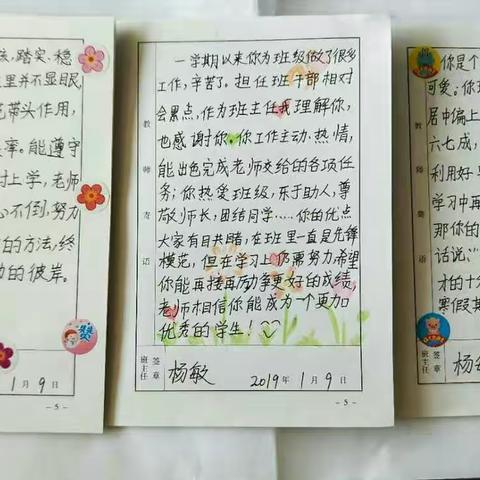 亥,踏实、稳
里并不显眼
带头作用,
率。能遵守
时上学,老师
心不倒,努力
的方法,终
功的彼岸。
1月9日
-5-
教师寄语
一学期以来你为班级做了很多
工作,辛苦了。担任班干部相对
会累点,作为班主任我理解你,
也感谢你。你工作主动、热情,
能出色完成老师交给的各项任
务;你热爱班级,乐于助人,尊
敬师长,团结同学……你的优点
大家有目共睹,在班里一直是先锋
模范,但在学习上仍需努力,希望
你能再接再厉,争更好的成绩,
老师相信你能成为一个更加
优秀的学生!
班主任签章 杨敏 2019年1月9日
-5-
教师寄语
你是个
可爱;你
居中偏上
六七成,
利用好
学习中再
那你的
话说:“
才的十
寒假其
班主任签章 杨